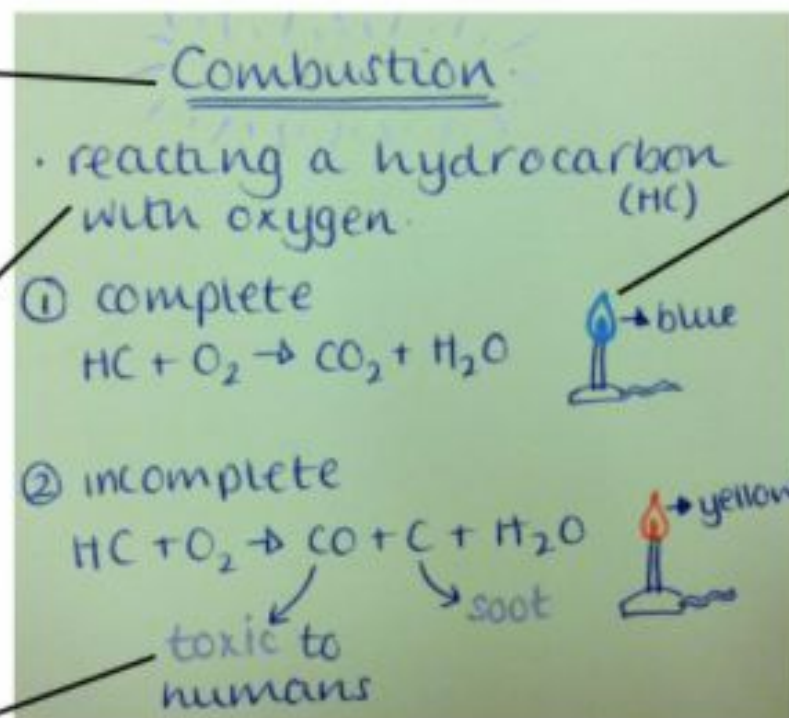 Combustion
· reacting a hydrocarbon
(HC)
with oxygen.
① complete
HC + O₂ → CO₂ + H₂O
→ blue
② incomplete
HC + O₂ → CO + C + H₂O
→ yellow
soot
toxic to
humans